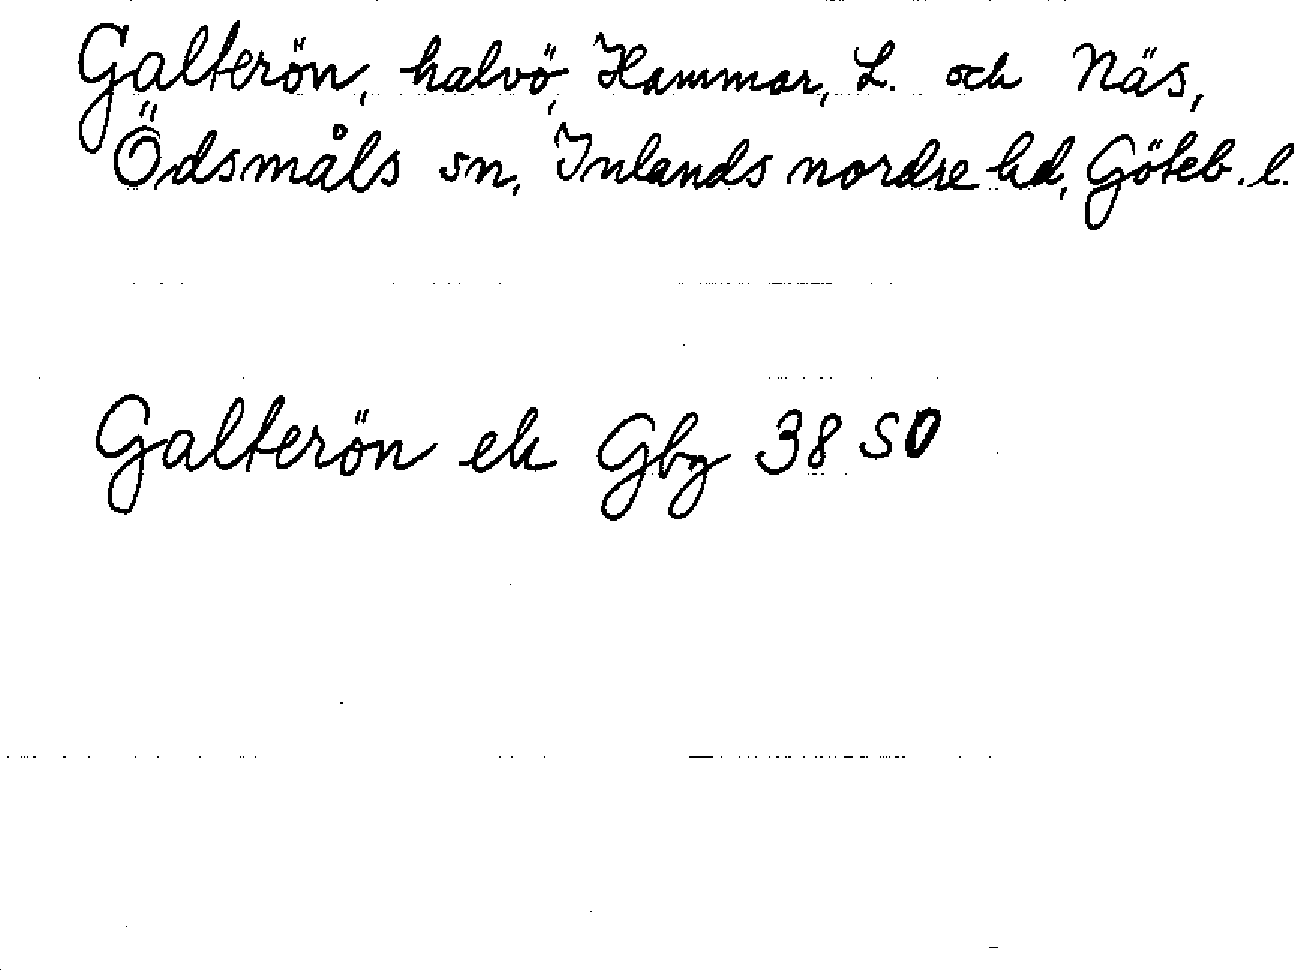 Galterön, halvö, Hammar, L. och Näs,
Ödsmåls sn, Inlands nordre hd, Göteb. l.
Galterön ek Gbg 38 SO